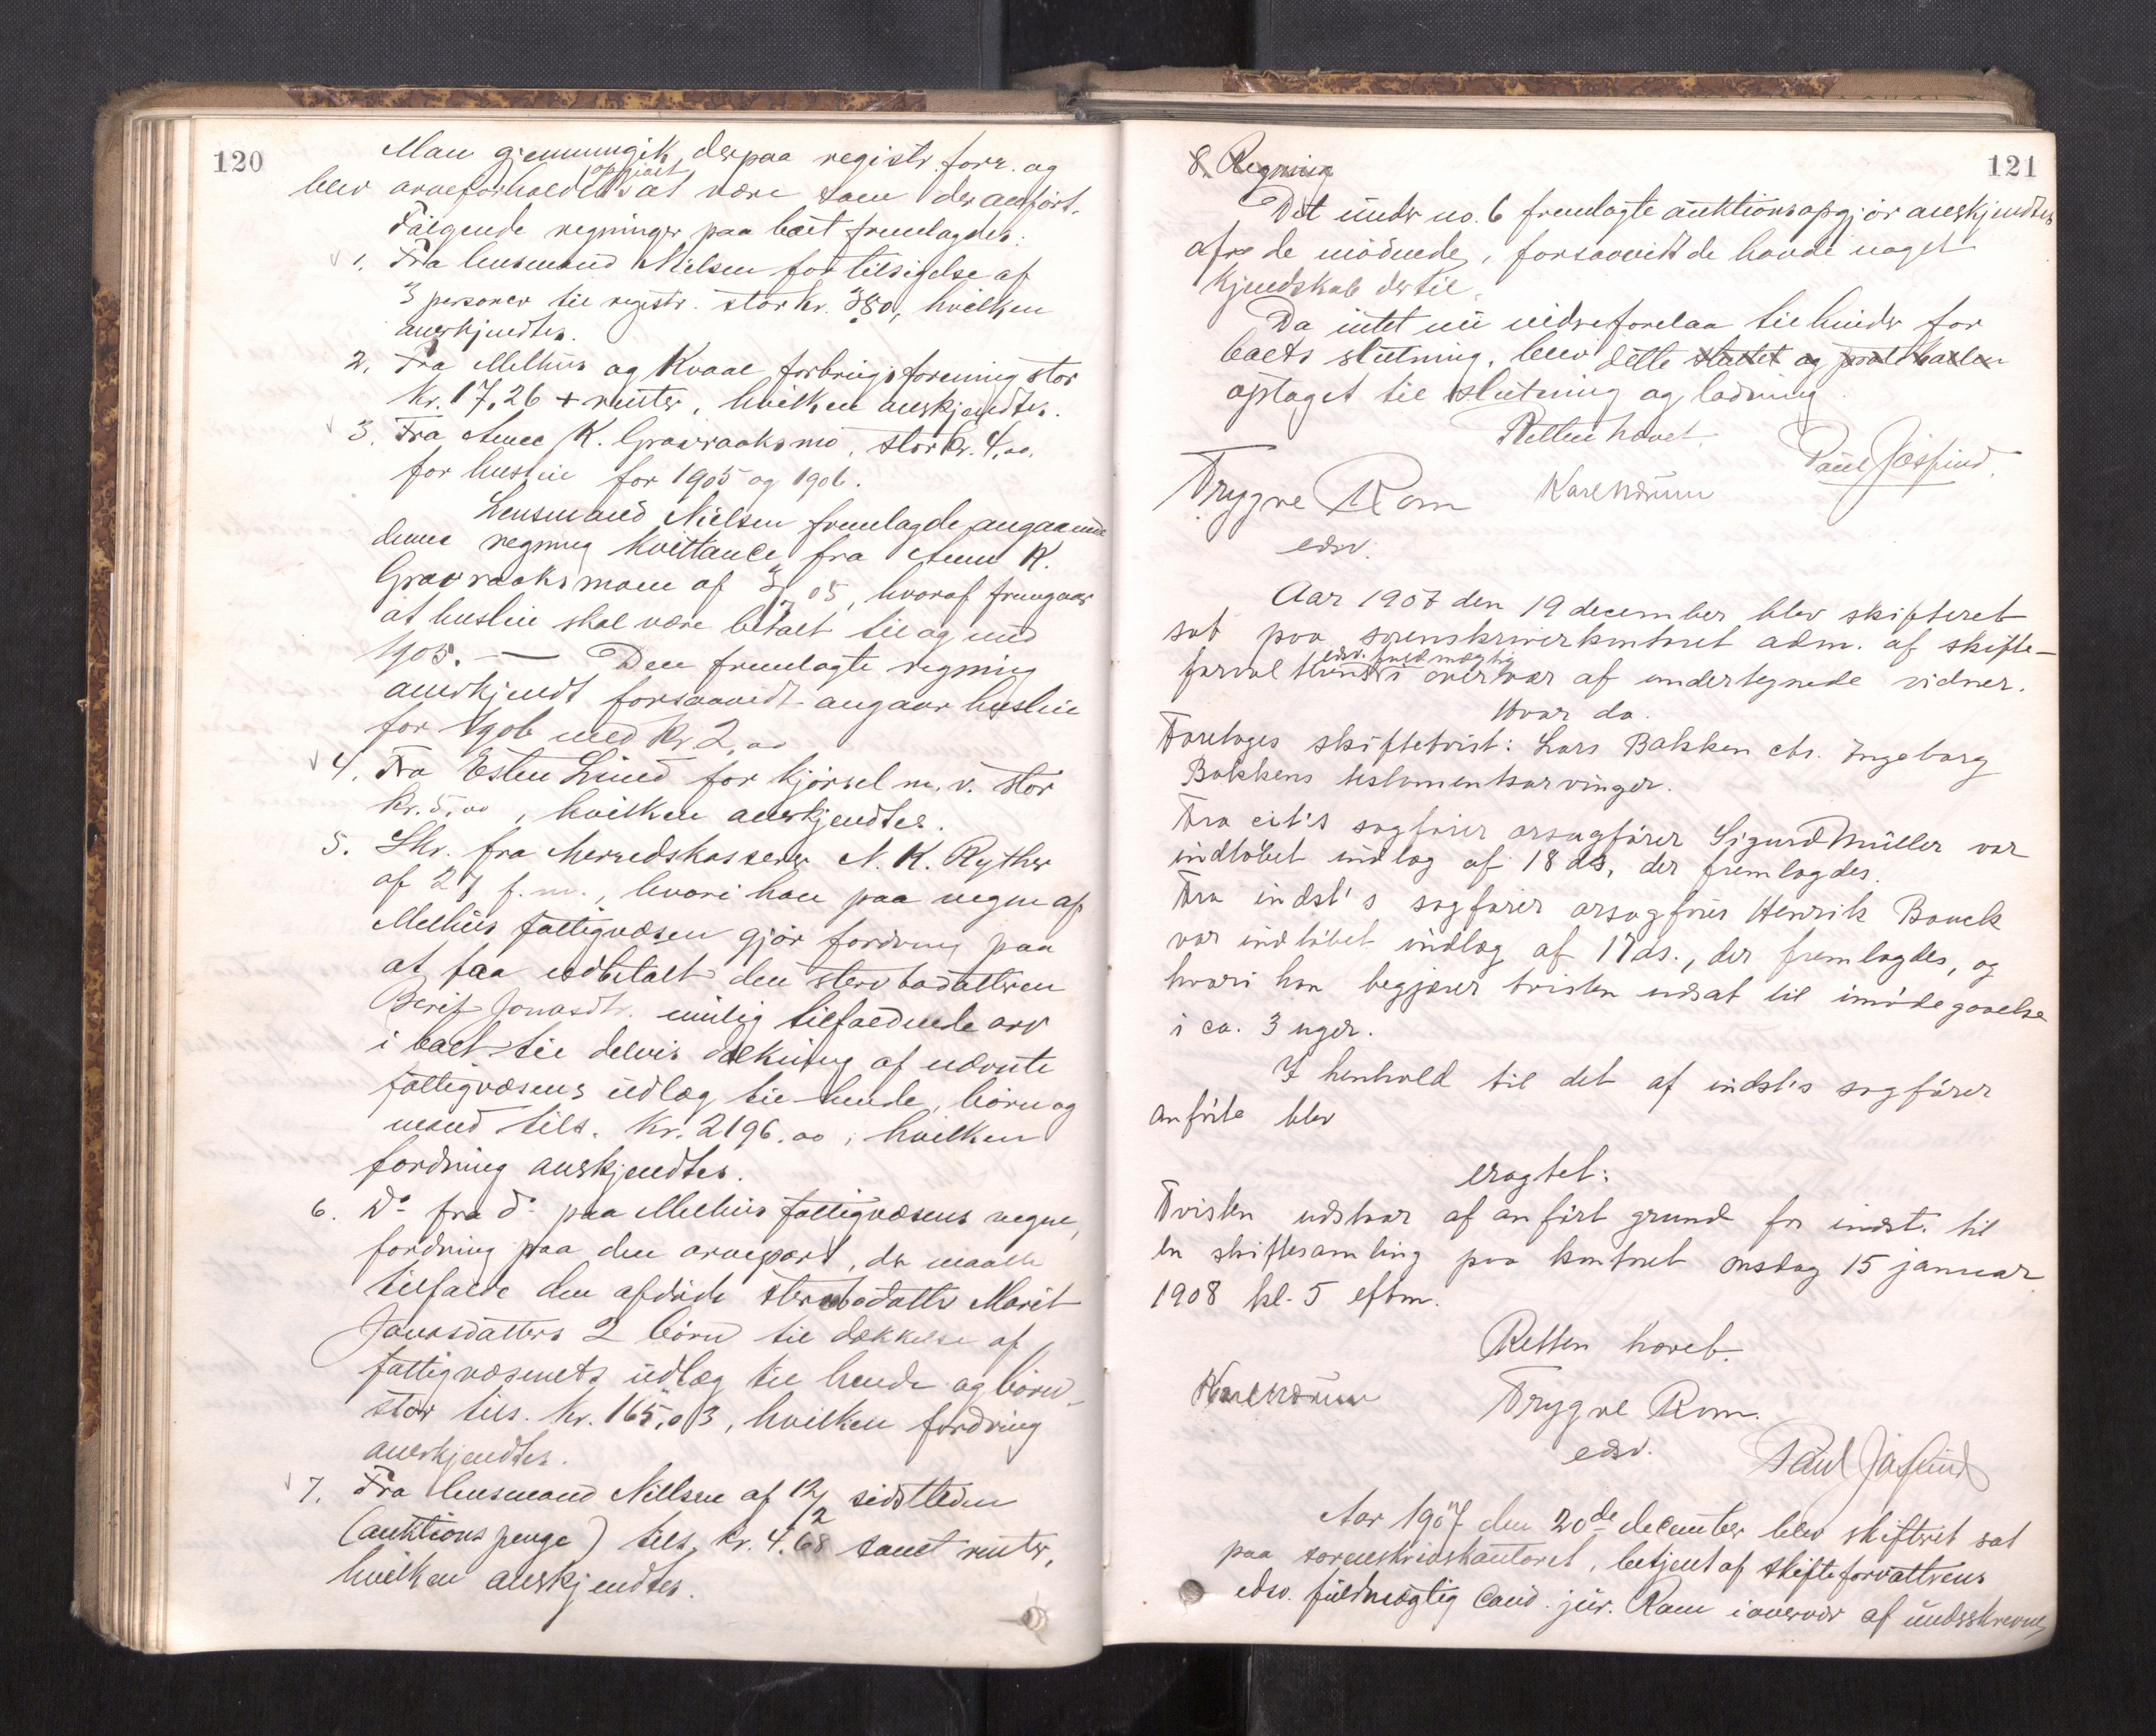 120
Man gjennumgik derpaa registr. forr. og
opgivet
blev arveforholdet at være som der anført.
Følgende regninger paa boet fremlagdes:
1. Fra lensmand Nielsen for tilsigelse af
3 personer til registr. stor kr. 3.80, hvilken
anerkjendtes.
2. Fra Melhus og Kvaal forbrugsforening stor
kr. 17,26 + renter, hvilken anerkjendtes.
3. Fra Anne K. Gravraaksmo, stor kr. 4,00.
for husleie for 1905 og 1906.
Lensmand Nielsen fremlagde angaaende
denne regning kvittance fra Anne K.
Gravraaksmoen af 05, hvoraf fremgaar
at husleie skal være betalt til og med
1905. — Den fremlagte regning
anerkjendt forsaavidt angaar husleie
for 1906 med kr 2,00
4. Fra Esten Lund for kjørsel m. v. stor
kr. 5,00, hvilken anerkjendtes.
5. Skr. fra herredskasserer N. K. Ryther
af 27 f. m., hvori han paa vegne af
Melhus fattigvæsen gjør fordring paa
at faa udbetalt den stervbodatteren
Berit Jonasdtr. mulig tilfaldende arv
i boet til delvis dækning af nævnte
fattigvæsens udlæg til hende, børn og
mand tils. kr. 2196.00, hvilken
fordring anerkjendtes.
6. Do fra do paa Melhus fattigvæsens vegne,
fordring paa den arvepart, der maatte
tilfalde den afdøde stervbodatter Marit
Jonasdatters 2 børn til dækkelse af
fattigvæsenets udlæg til hende og børn,
stor tils. kr. 165,03, hvilken fordring
anerkjendtes.
7. Fra lensmand Nielsen af 12/12 sidstleden
(auktionspenge) tils. kr. 4.68 samt renter,
hvilken anerkjendtes.
121
8. Regning
Det under no. 6 fremlagte auktionsopgjør anerkjendtes
af de mødende, forsaavidt de havde noget
kjendskab dertil.
Da intet nu videre forelaa til hinder for
boets slutning, blev dette sluttet og
optaget til slutning og lodning.
Retten hævet.
Trygve Rom
Karl
Paul Jøsfind
edsv.
Aar 1907 den 19 december blev skifteret
sat paa sorenskriverkontoret adm. af skifte-
edsv. fuldmægtig
forval i overvær af undertegnede vidner.
Hvor da
Foretoges skiftetvist: Lars Bakken ctr. Ingeborg
Bakkens testamentsarvinger.
Fra cit's sagfører orsagfører Sigurd Müller var
indløbet indlæg af 18 ds, der fremlagdes.
Fra indst's sagfører orsagfører Henrik Bauck
var indløbet indlæg af 17 ds., der fremlagdes, og
hvori han begjærer tvisten udsat til imødegaaelse
i ca. 3 uger.
I henhold til det af indst's sagfører
anførte blev
eragtet:
Tvisten udstaar af anført grund for indst. til
en skiftesamling paa kontoret onsdag 15 januar
1908 kl. 5 eftm.
Retten hævet.
Karl
Trygve Rom.
edsv.
Paul Jøsfind
Aar 1907 den 20de december blev skifteret sat
paa sorenskriverkontoret, betjent af skifteforvalterens
edsv. fuldmægtig cand. jur. Rom i overvær af underskrevne